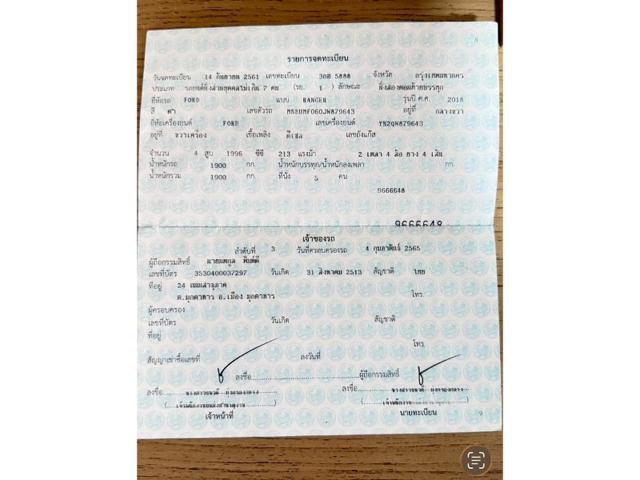 8
รายการจดทะเบียน
วันจดทะเบียน 14 กันยายน 2561 เลขทะเบียน 3ฒฮ 5888 จังหวัด กรุงเทพมหานคร
ประเภท รถยนต์นั่งส่วนบุคคลไม่เกิน 7 คน (รย. 1) ลักษณะ นั่งสองตอนท้ายบรรทุก
ยี่ห้อรถ FORD แบบ RANGER รุ่นปี ค.ศ. 2018
สี ดำ เลขตัวรถ อยู่ที่ กลางขวา
ยี่ห้อเครื่องยนต์ FORD เลขเครื่องยนต์ YN2QWJ879643
อยู่ที่ ขวาเครื่อง เชื้อเพลิง ดีเซล เลขถังแก๊ส
จำนวน 4 สูบ 1996 ซีซี 213 แรงม้า 2 เพลา 4 ล้อ ยาง 4 เส้น
น้ำหนักรถ 1900 กก. น้ำหนักบรรทุก/น้ำหนักลงเพลา กก.
น้ำหนักรวม 1900 กก. ที่นั่ง 5 คน
9666648
9666648
เจ้าของรถ
ลำดับที่ 3 วันที่ครอบครองรถ 4 กุมภาพันธ์ 2565
ผู้ถือกรรมสิทธิ์
เลขที่บัตร 3530400037297 วันเกิด 31 สิงหาคม 2513 สัญชาติ ไทย
ที่อยู่ 24
ต.มุกดาหาร อ.เมือง มุกดาหาร โทร.
ผู้ครอบครอง
เลขที่บัตร วันเกิด สัญชาติ
ที่อยู่
โทร.
สัญญาเช่าซื้อเลขที่ ลงวันที่
ลงชื่อ ผู้ถือกรรมสิทธิ์
ลงชื่อ ลงชื่อ
เจ้าหน้าที่ นายทะเบียน
9